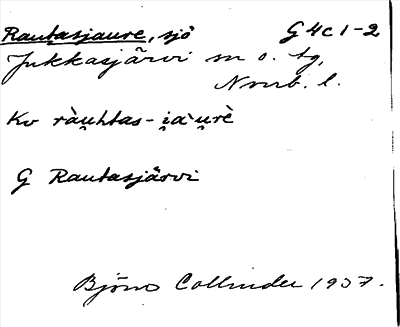 Rautasjaure, sjö G4c1-2
Jukkasjärvi sn o. tg,
Nrrb. l.
Kv ràu̯htas-i̯a`u̯rè
G Rautasjärvi
Björn Collinder 1937.